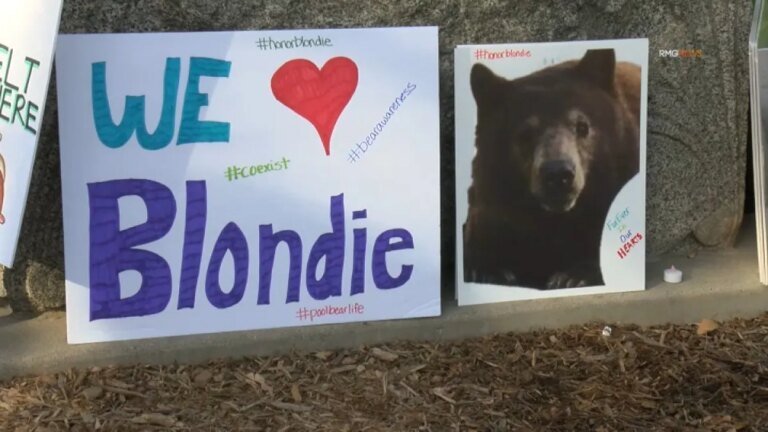 ELT
HERE
#honorblondie
WE ❤
#bearawareness
#coexist
Blondie
#poolbearlife
#honorblondie
FurEver
in
Our
HEARTS
RMG NEWS